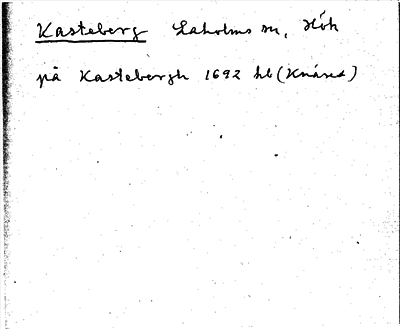 Kasteberg Laholms sn, Hök
på Kastebergh 1692 hb (Knäred)